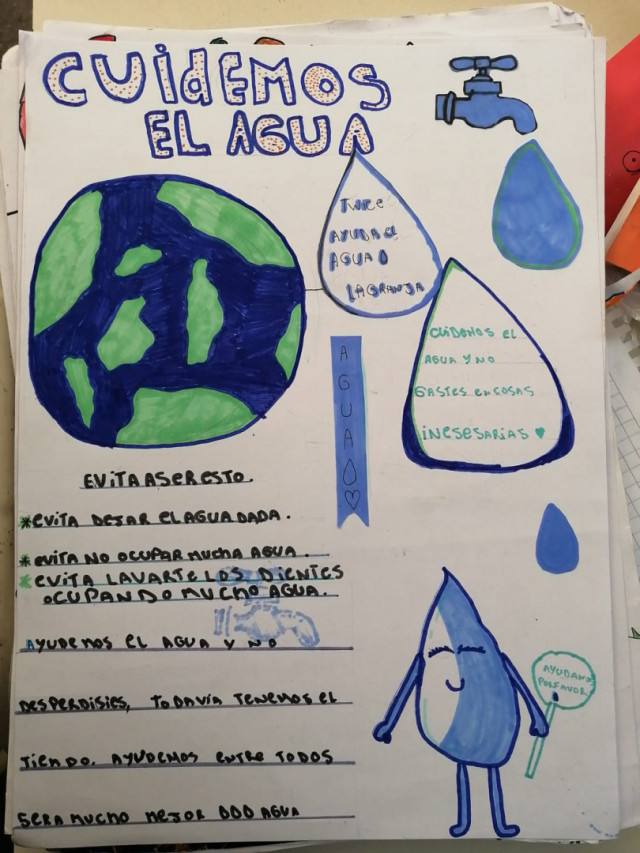 CUidEMOS
EL AGUA
AYUDA el
AGUA O
LAGRANJA
CUIDEMOS EL
AGUA Y NO
GASTES EN COSAS
iNESESARIAS ♥
AGUA
EViTA ASER ESTO.
*EViTA DEJAR EL AGUA DADA.
*EViTA NO OCUPAR MUCHA AGUA.
*EViTA LAVARTE LOS DIENTES
OCUPANDO MUCHO AGUA.
AYUDEMOS EL AGUA Y NO
DESPERDISIES, TODAVÍA TENEMOS EL
TIENDO. AYUDEMOS ENTRE TODOS
SERA MUCHO MEJOR DDD AGUA
AYUDANOS
POR FAVOR